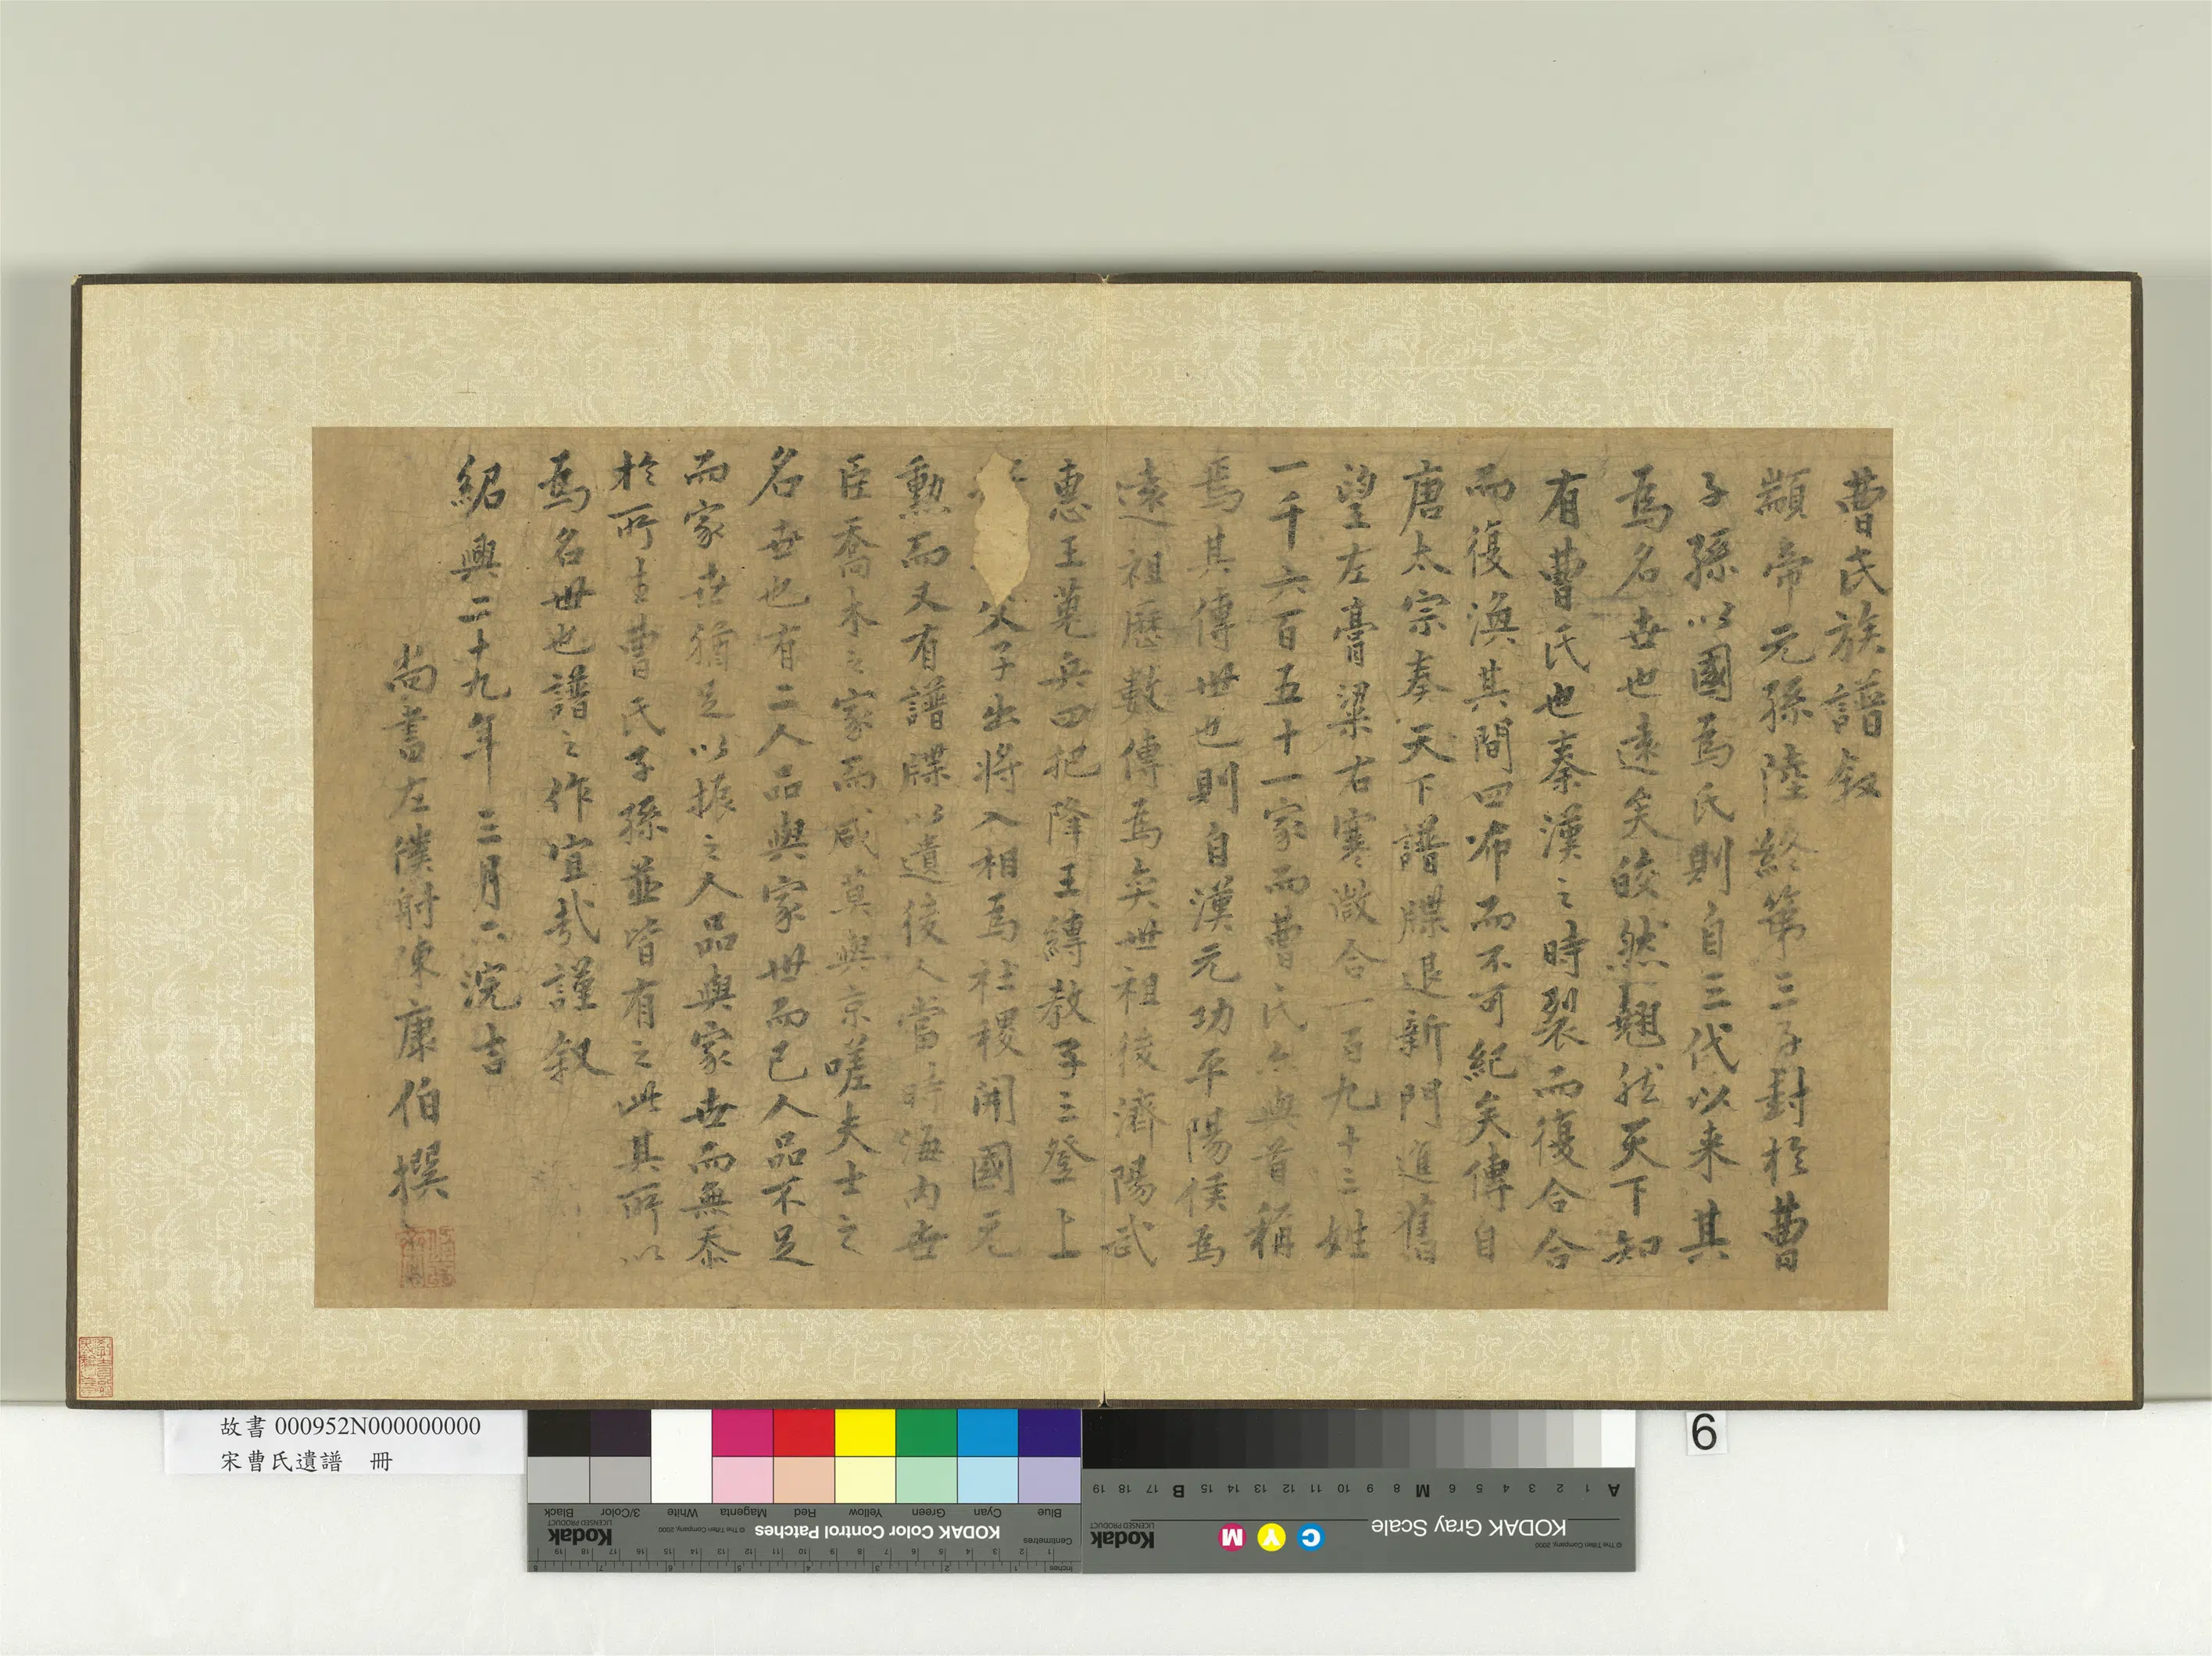 曹氏族譜叙
顓帝元孫陸終第三子封於曹
子孫以國為氏則自三代以来其
為名世也遠矣皎然翹然天下知
有曹氏也秦漢之時裂而復合合
而復渙其間四布而不可紀矣傳自
唐太宗奏天下譜牒退新門進舊
望左膏粱右寒微合一百九十三姓
一千六百五十一家而曹氏亦與首稱
焉其傳世也則自漢元功平陽侯為
遠祖歷數傳為奕世祖後濟陽武
惠王蒐兵四把降王縛教子三登上
父子出將入相為社稷開國元
勳而又有譜牒以遺後人當時海内世
臣喬木之家而咸莫與京嗟夫士之
名世也有二人品與家世而已人品不足
而家世猶足以振之人品與家世而無忝
於所生曹氏子孫並皆有之此其所以
為名世也譜之作宜哉謹叙
紹興二十九年三月六浣吉
尚書左僕射陳康伯撰
故書 000952N000000000
宋曹氏遺譜 冊
6
KODAK Color Control Patches
Kodak
LICENSED PRODUCT
© The Tiffen Company, 2000
Blue Cyan Green Yellow Red Magenta White 3/Color Black
Centimetres
Inches
KODAK Gray Scale
Kodak
LICENSED PRODUCT
C Y M
© The Tiffen Company, 2000
A 1 2 3 4 5 6 M 8 9 10 11 12 13 14 15 B 17 18 19